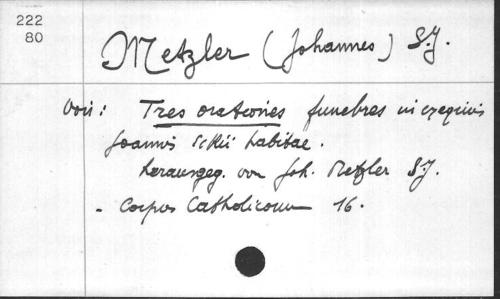 222
80
Metzler (Johannes) S.J.
Tres orationes funebres in exequiis
Joannis Eckii habitae.
herausgeg. von Joh. Metzler S.J.
- Corpus Catholicorum 16.